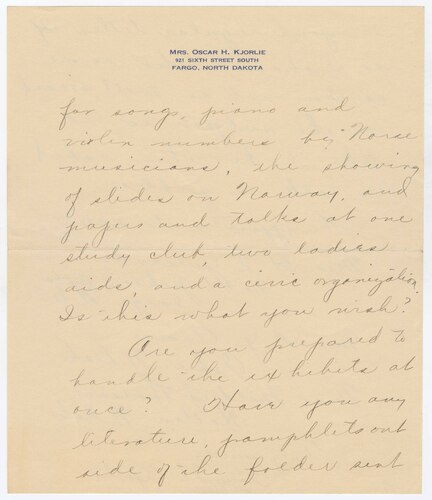 MRS. OSCAR H. KJORLIE
921 SIXTH STREET SOUTH
FARGO, NORTH DAKOTA
for song, piano and
violin numbers by Norse
musicians, the showing
of slides on Norway, and
papers and talks at one
study club, two ladies
aids, and a civic organization.
Is this what you wish?
Are you prepared to
handle the exhibits at
once? Have you any
literature, pamphlets out
side of the folder sent